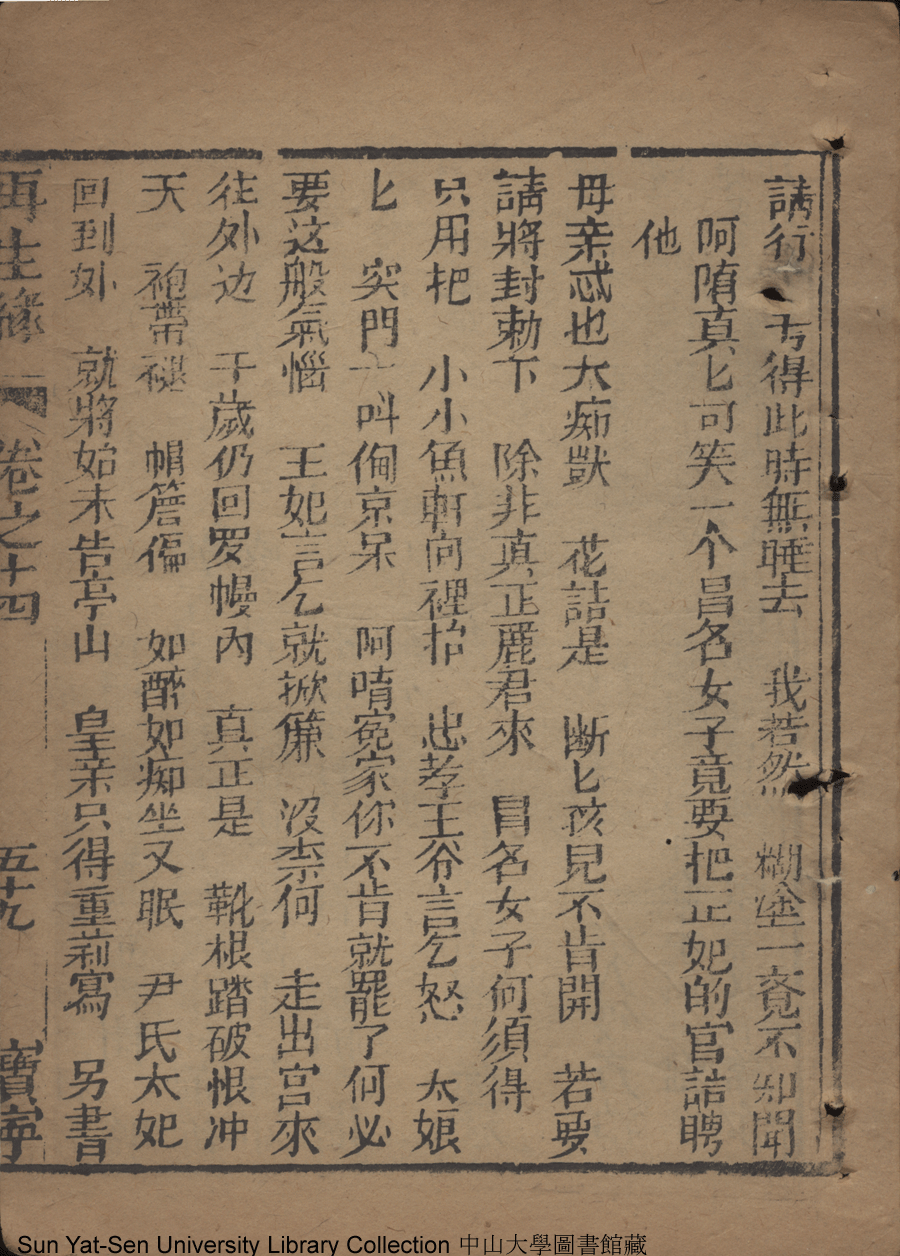 請行　方得此時無睡去　我若然　糊塗一竟不知聞
呵隋真匕可笑一个昌名女子竟要把正妃的官誥聘
他
母亲忒也太痴獃　花誥是　断匕孩兒不肯開　若要
請將封勅下　除非真正麗君來　冒名女子何須得
只用把　小小魚軒向裡抬　忠孝王爷言乞怒　太娘
匕　突門一叫倒京呆　呵唷冤家你不肯就罷了何必
要这般氣惱　王妃言乞就掀簾　沒柰何　走出宫來
往外边　千歲仍回罗幔內　真正是　靴根踏破恨冲
天　袍帶褪　帽簷偏　如醉如痴坐又眠　尹氏太妃
回到外　就將始末告亭山　皇亲只得重新寫　另書
再生緣　卷之十四　五十九　寶寧
Sun Yat-Sen University Library Collection 中山大學圖書館藏